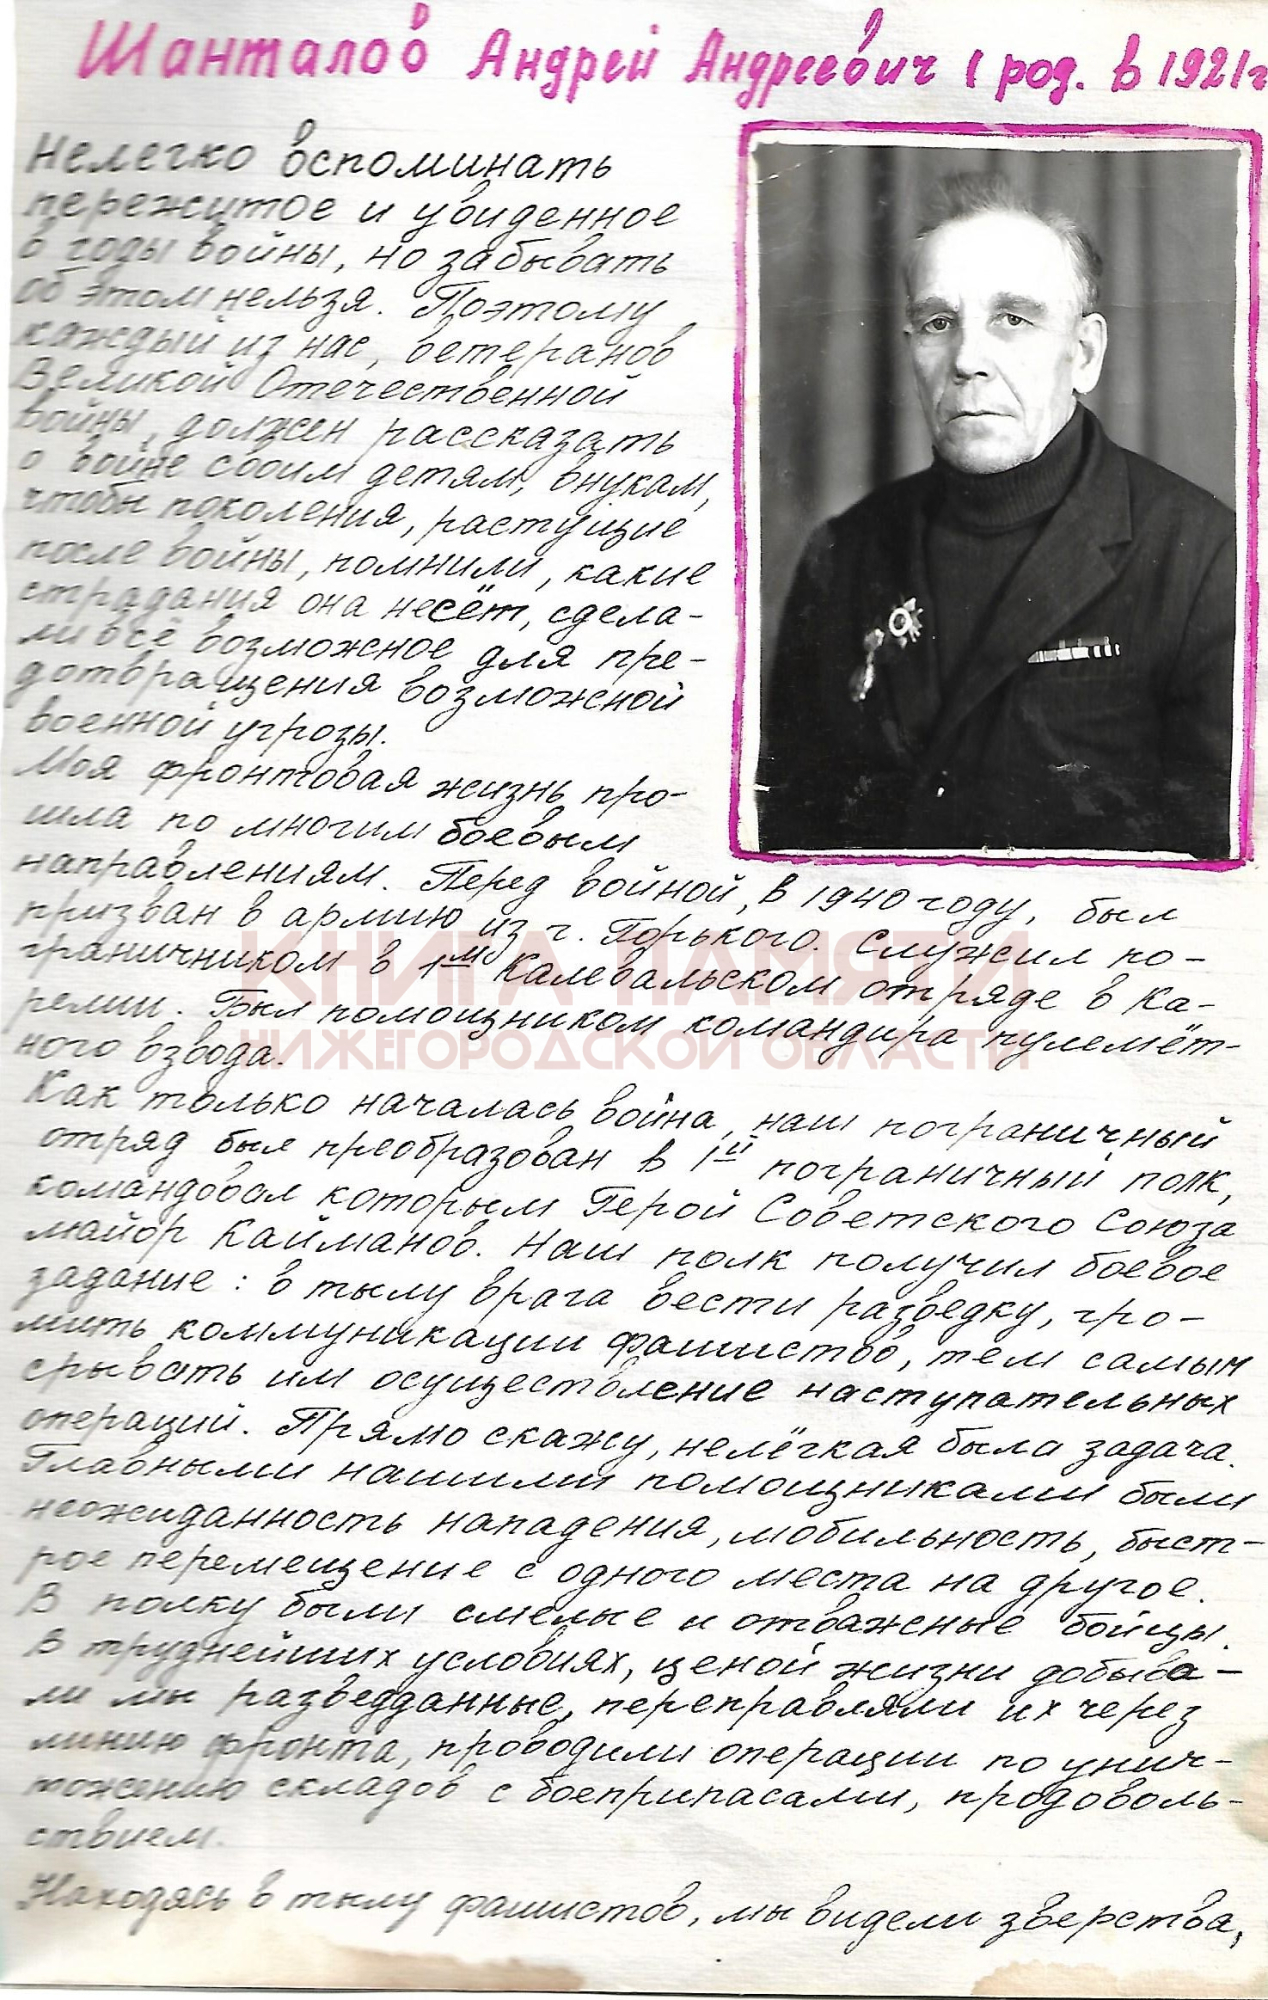 Шанталов Андрей Андреевич (род. в 1921г
Нелегко вспоминать
пережитое и увиденное
в годы войны, но забывать
об этом нельзя. Поэтому
каждый из нас, ветеранов
Великой Отечественной
войны, должен рассказать
о войне своим детям, внукам,
чтобы поколения, растущие
после войны, помнили, какие
страдания она несёт, сдела-
ли всё возможное для пре-
дотвращения возможной
военной угрозы.
Моя фронтовая жизнь про-
шла по многим боевым
направлениям. Перед войной, в 1940 году, был
призван в армию из г. Горького. Служил по-
граничником в 1м Калевальском отряде в Ка-
релии. Был помощником командира пулемёт-
ного взвода.
КНИГА ПАМЯТИ
НИЖЕГОРОДСКОЙ ОБЛАСТИ
Как только началась война, наш пограничный
отряд был преобразован в 1й пограничный полк,
командовал которым Герой Советского Союза
майор Кайманов. Наш полк получил боевое
задание: в тылу врага вести разведку, гро-
мить коммуникации фашистов, тем самым
срывать им осуществление наступательных
операций. Прямо скажу, нелёгкая была задача.
Главными нашими помощниками были
неожиданность нападения, мобильность, быст-
рое перемещение с одного места на другое.
В полку были смелые и отважные бойцы.
В труднейших условиях, ценой жизни добыва-
ли мы разведданные, переправляли их через
линию фронта, проводили операции по унич-
тожению складов с боеприпасами, продоволь-
ствием.
Находясь в тылу фашистов, мы видели зверства,